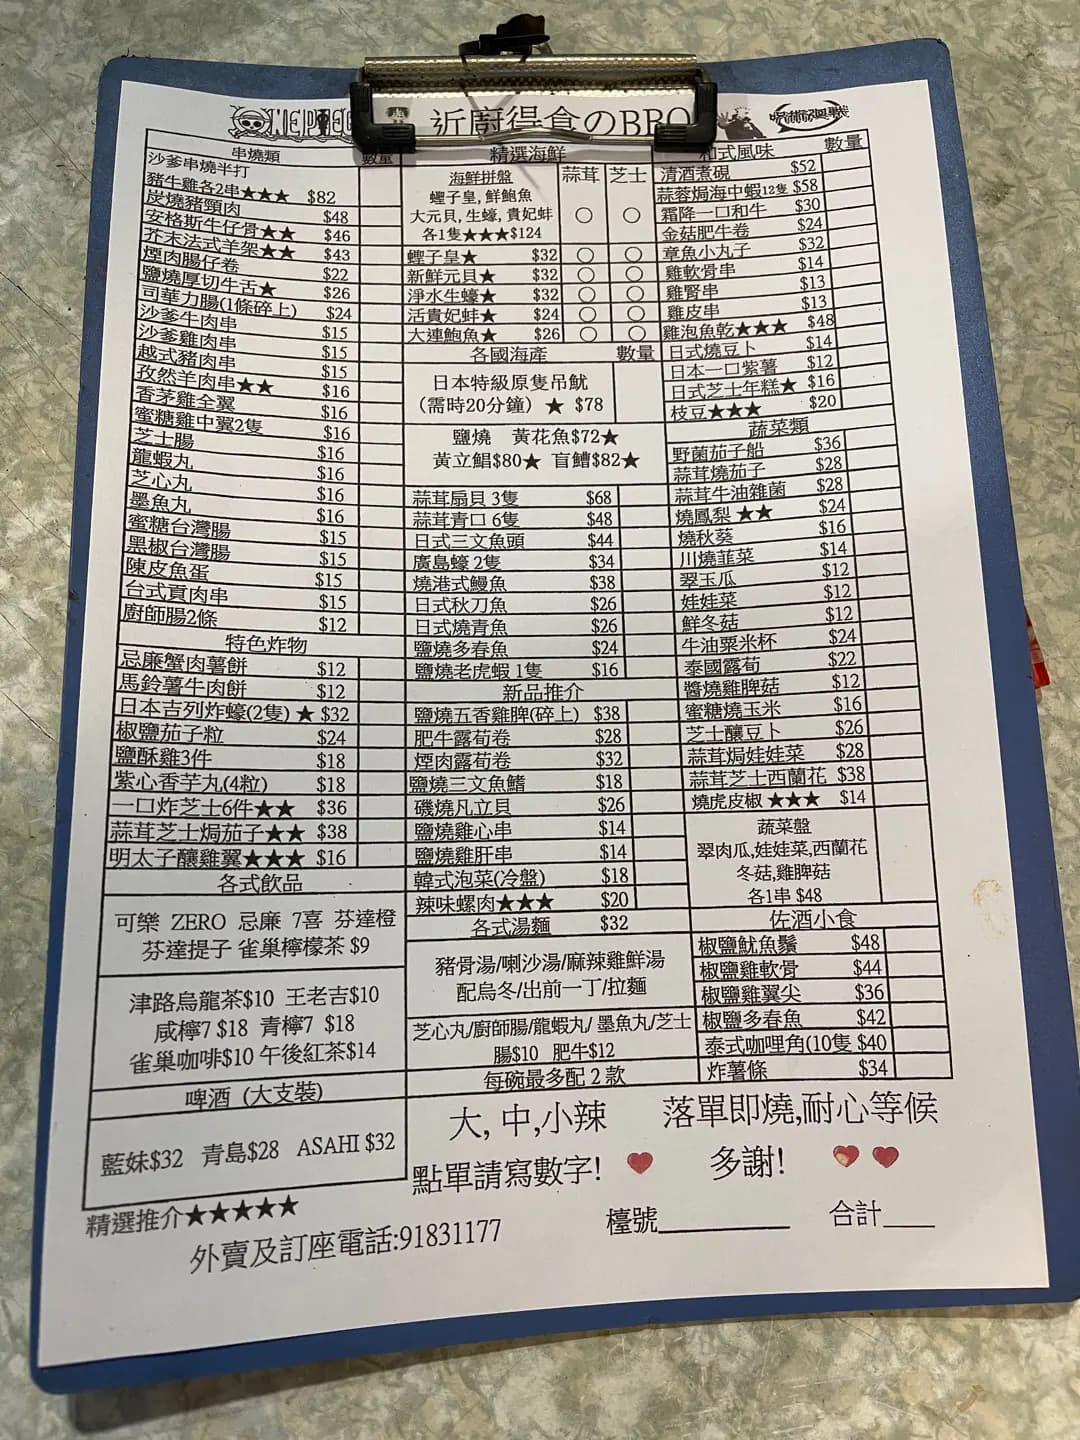 ONE PIECE
近廚得食のBBQ
呪術廻戦
串燒類 數量
沙爹串燒半打
豬牛雞各2串★★★ $82
炭燒豬頸肉 $48
安格斯牛仔骨★★ $46
芥末法式羊架★★ $43
煙肉腸仔卷 $22
鹽燒厚切牛舌★ $26
司華力腸(1條碎上) $24
沙爹牛肉串 $15
沙爹雞肉串 $15
越式豬肉串 $15
孜然羊肉串★★ $16
香茅雞全翼 $16
蜜糖雞中翼2隻 $16
芝士腸 $16
龍蝦丸 $16
芝心丸 $16
墨魚丸 $16
蜜糖台灣腸 $15
黑椒台灣腸 $15
陳皮魚蛋 $15
台式貢肉串 $15
廚師腸2條 $12
特色炸物
忌廉蟹肉薯餅 $12
馬鈴薯牛肉餅 $12
日本吉列炸蠔(2隻) ★ $32
椒鹽茄子粒 $24
鹽酥雞3件 $18
紫心香芋丸(4粒) $18
一口炸芝士6件★★ $36
蒜茸芝士焗茄子★★ $38
明太子釀雞翼★★★ $16
各式飲品
可樂 ZERO 忌廉 7喜 芬達橙
芬達提子 雀巢檸檬茶 $9
津路烏龍茶$10 王老吉$10
咸檸7 $18 青檸7 $18
雀巢咖啡$10 午後紅茶$14
啤酒 (大支裝)
藍妹$32 青島$28 ASAHI $32
精選推介★★★★★
精選海鮮
海鮮拼盤 蒜茸 芝士
蟶子皇, 鮮鮑魚
大元貝, 生蠔, 貴妃蚌
各1隻★★★$124
蟶子皇★ $32
新鮮元貝★ $32
淨水生蠔★ $32
活貴妃蚌★ $24
大連鮑魚★ $26
各國海產 數量
日本特級原隻吊魷
(需時20分鐘) ★ $78
鹽燒 黃花魚$72★
黃立鯧$80★ 盲鰽$82★
蒜茸扇貝 3隻 $68
蒜茸青口 6隻 $48
日式三文魚頭 $44
廣島蠔 2隻 $34
燒港式鰻魚 $38
日式秋刀魚 $26
日式燒青魚 $26
鹽燒多春魚 $24
鹽燒老虎蝦 1隻 $16
新品推介
鹽燒五香雞脾(碎上) $38
肥牛露荀卷 $28
煙肉露荀卷 $32
鹽燒三文魚鰭 $18
磯燒凡立貝 $26
鹽燒雞心串 $14
鹽燒雞肝串 $14
韓式泡菜(冷盤) $18
辣味螺肉★★★ $20
各式湯麵 $32
豬骨湯/喇沙湯/麻辣雞鮮湯
配烏冬/出前一丁/拉麵
芝心丸/廚師腸/龍蝦丸/ 墨魚丸/芝士
腸$10 肥牛$12
每碗最多配 2 款
和式風味 數量
清酒煮硯 $52
蒜蓉焗海中蝦12隻 $58
霜降一口和牛 $30
金菇肥牛卷 $24
章魚小丸子 $32
雞軟骨串 $14
雞腎串 $13
雞皮串 $13
雞泡魚乾★★★ $48
日式燒豆卜 $14
日本一口紫薯 $12
日式芝士年糕★ $16
枝豆★★★ $20
蔬菜類
野菌茄子船 $36
蒜茸燒茄子 $28
蒜茸牛油雜菌 $28
燒鳳梨 ★★ $24
燒秋葵 $16
川燒韮菜 $14
翠玉瓜 $12
娃娃菜 $12
鮮冬菇 $12
牛油粟米杯 $24
泰國露荀 $22
醬燒雞脾菇 $12
蜜糖燒玉米 $16
芝士釀豆卜 $26
蒜茸焗娃娃菜 $28
蒜茸芝士西蘭花 $38
燒虎皮椒 ★★★ $14
蔬菜盤
翠肉瓜,娃娃菜,西蘭花
冬菇,雞脾菇
各1串 $48
佐酒小食
椒鹽魷魚鬚 $48
椒鹽雞軟骨 $44
椒鹽雞翼尖 $36
椒鹽多春魚 $42
泰式咖哩角(10隻 $40
炸薯條 $34
大, 中,小辣 落單即燒,耐心等候
點單請寫數字! 多謝!
外賣及訂座電話:91831177
檯號 合計